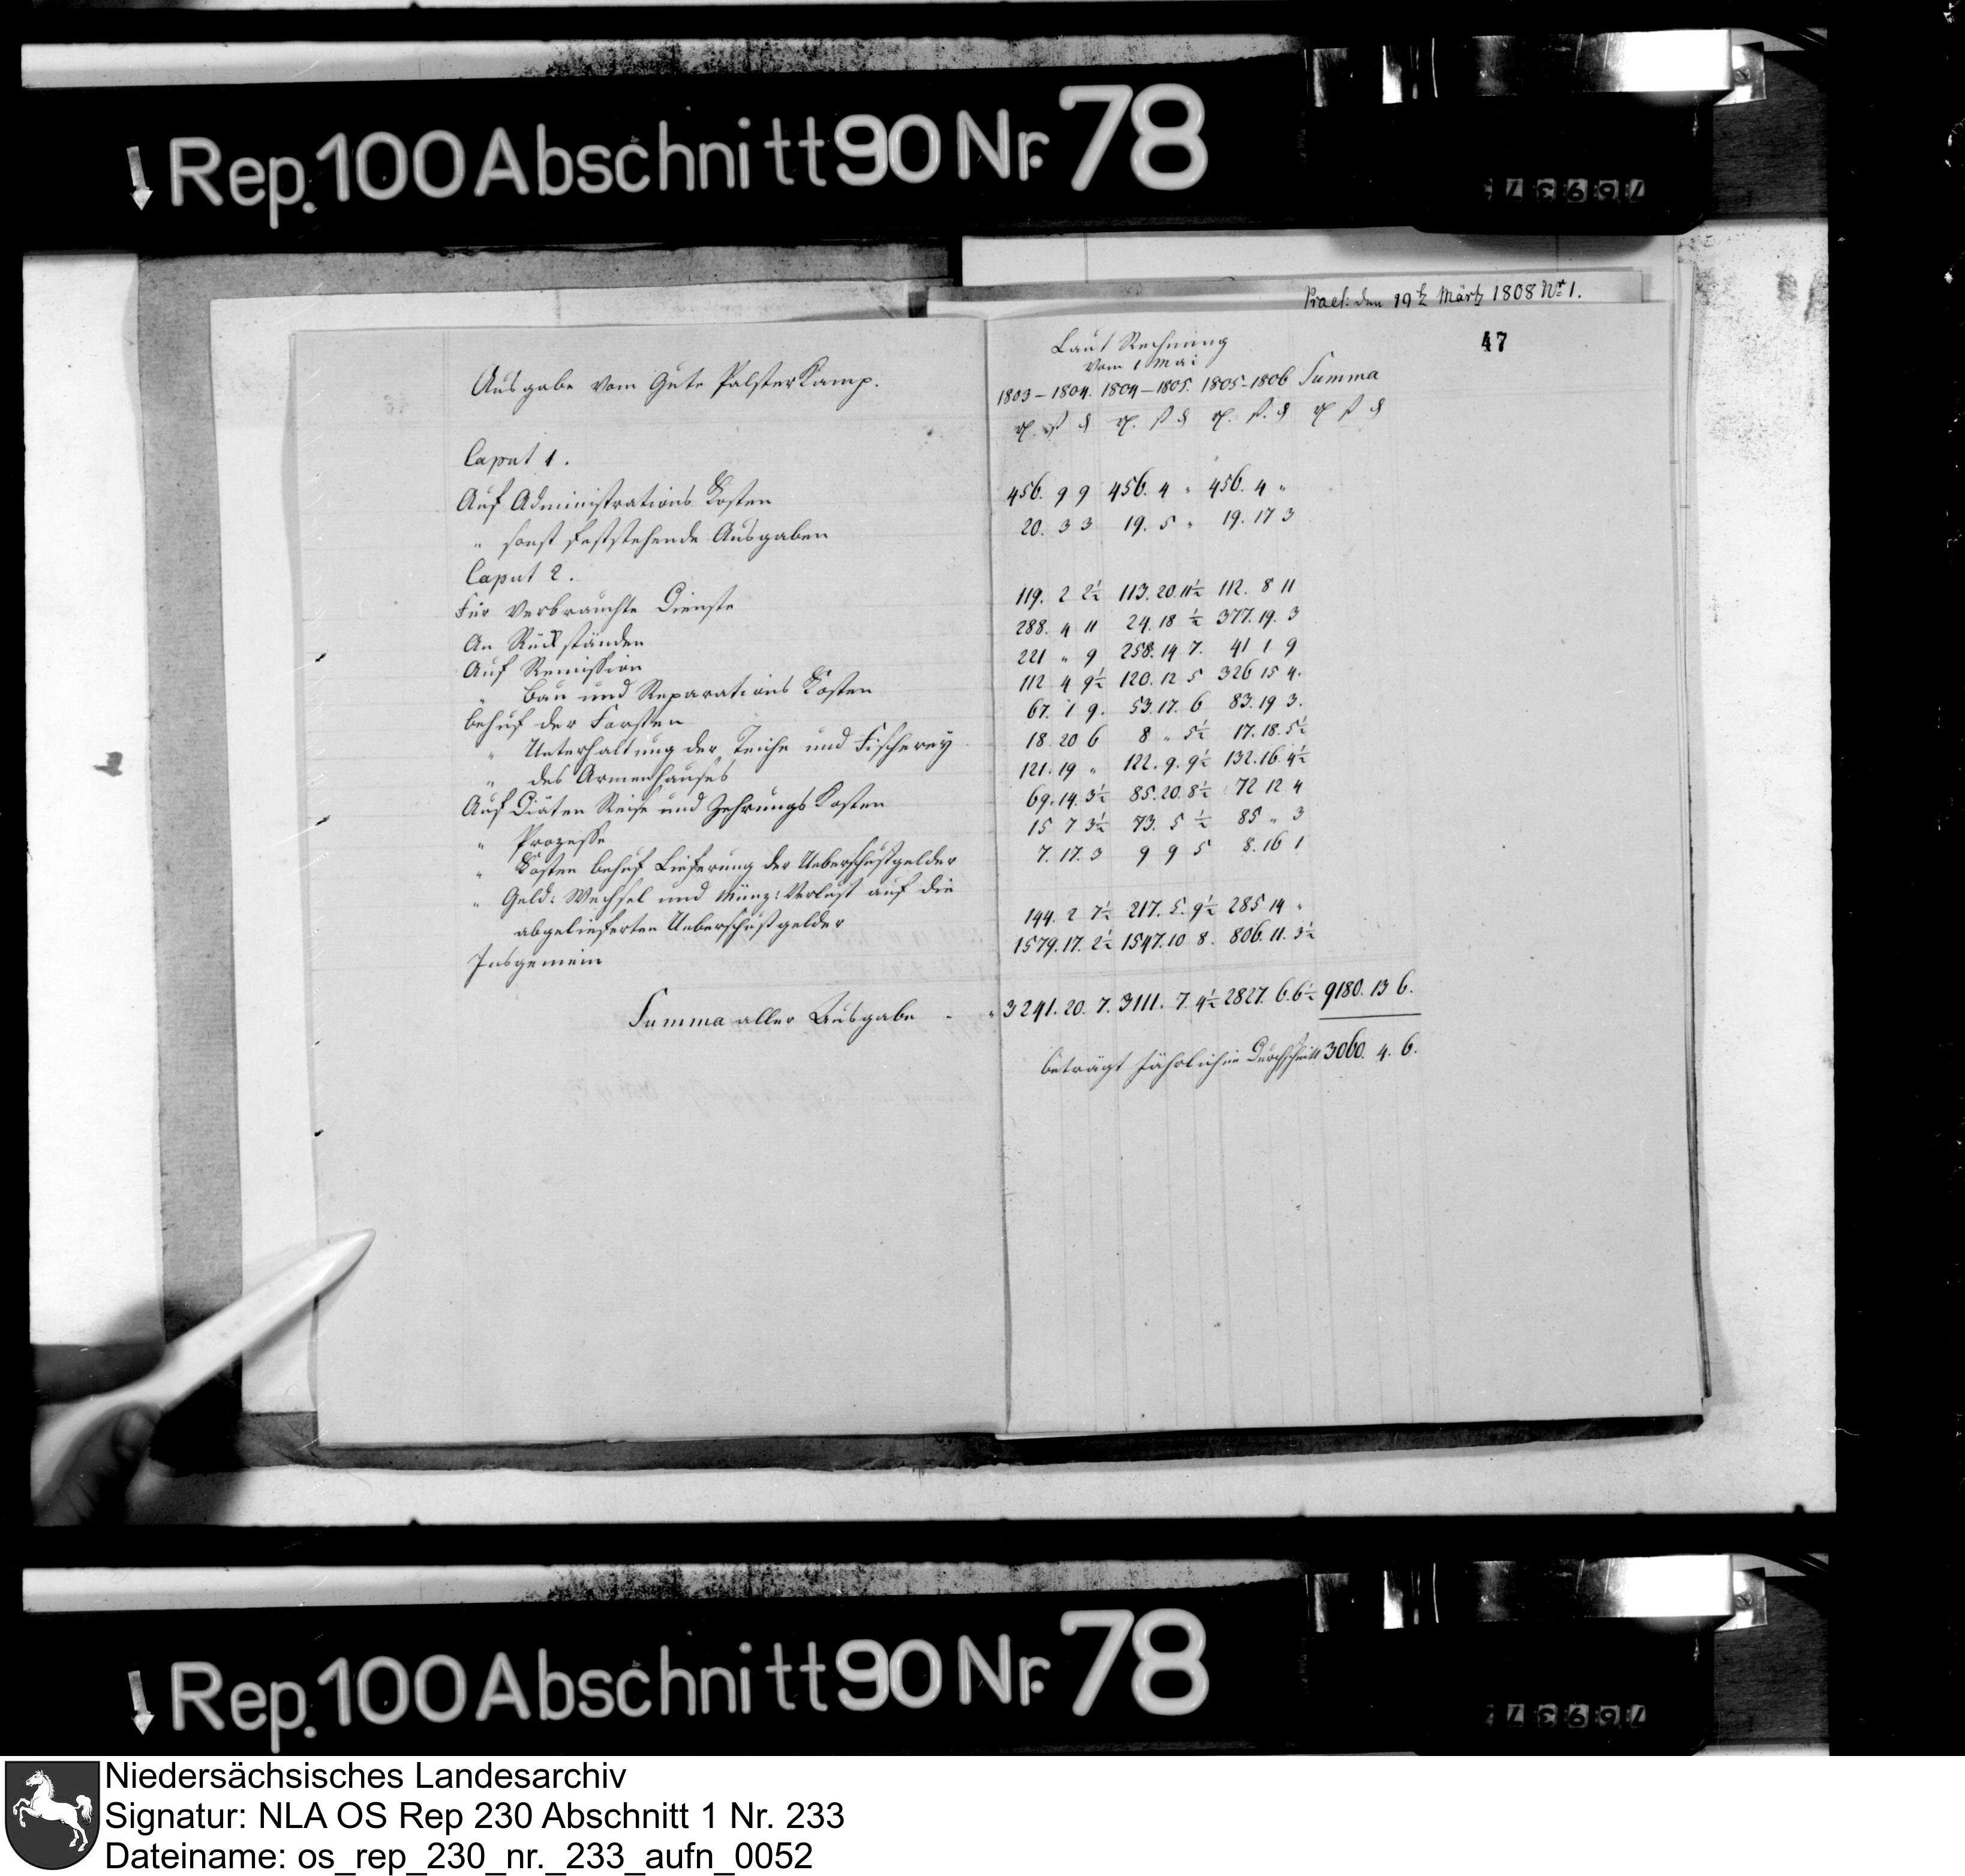 Rep. 100 Abschnitt 90 Nr. 78
76937
Prael: den 19t März 1808 Nr 1.
47
Ausgabe vom Gute Palsterkamp.
Laut Rechnung
vom 1 Mai
1803-1804. 1804-1805. 1805-1806 Summa
Caput 1.
Auf Administrations Kosten 456. 9 9 456. 4 " 456. 4 "
" sonst feststehende Ausgaben 20. 3 3 19. 5 " 19. 17 3
Caput 2.
Für verbrauchte Dienste 119. 2 2½ 113. 20. 11½ 112. 8 11
An Rückständen 288. 4 11 24. 18 ½ 377. 19. 3
Auf Remission 221 " 9 258. 14 7. 41 1 9
" Bau und Reparations Kosten 112 4 9½ 120. 12 5 326 15 4.
behuf der Forsten 67. 1 9. 53. 17. 6 83. 19 3.
" Unterhaltung der Teiche und Fischerey 18. 20 6 8 " 5½ 17. 18. 5½
" des Armenhauses 121. 19 " 122. 9. 9½ 132. 16. 4½
Auf Diäten Reise und Zehrungs Kosten 69. 14. 3½ 85. 20. 8½ 72 12 4
" Prozesse 15 7 3½ 73. 5 ½ 85 " 3
" Kosten behuf Lieferung der Ueberschußgelder 7. 17. 3 9 9 5 8. 16 1
" Geld: Wechsel und Münz: Verlust auf die
abgelieferten Ueberschußgelder 144. 2 7½ 217. 5. 9½ 285 14 "
Insgemein 1579. 17. 2½ 1547. 10 8. 806. 11. 3½
Summa aller Ausgabe - " 3241. 20. 7. 3111. 7. 4½ 2827. 6. 6½ 9180. 13 6.
beträgt jährlich im Durchschnitt 3060. 4. 6.
Rep. 100 Abschnitt 90 Nr. 78
76937
Niedersächsisches Landesarchiv
Signatur: NLA OS Rep 230 Abschnitt 1 Nr. 233
Dateiname: os_rep_230_nr._233_aufn_0052